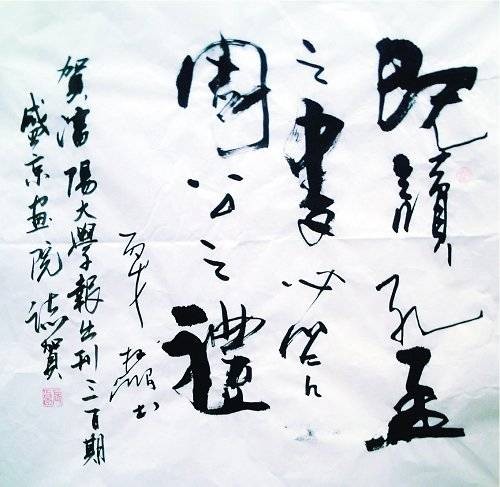 既讀孔孟
之書必習
周公之禮
書
賀瀋陽大學報出刊三百期
盛京畫院誌賀